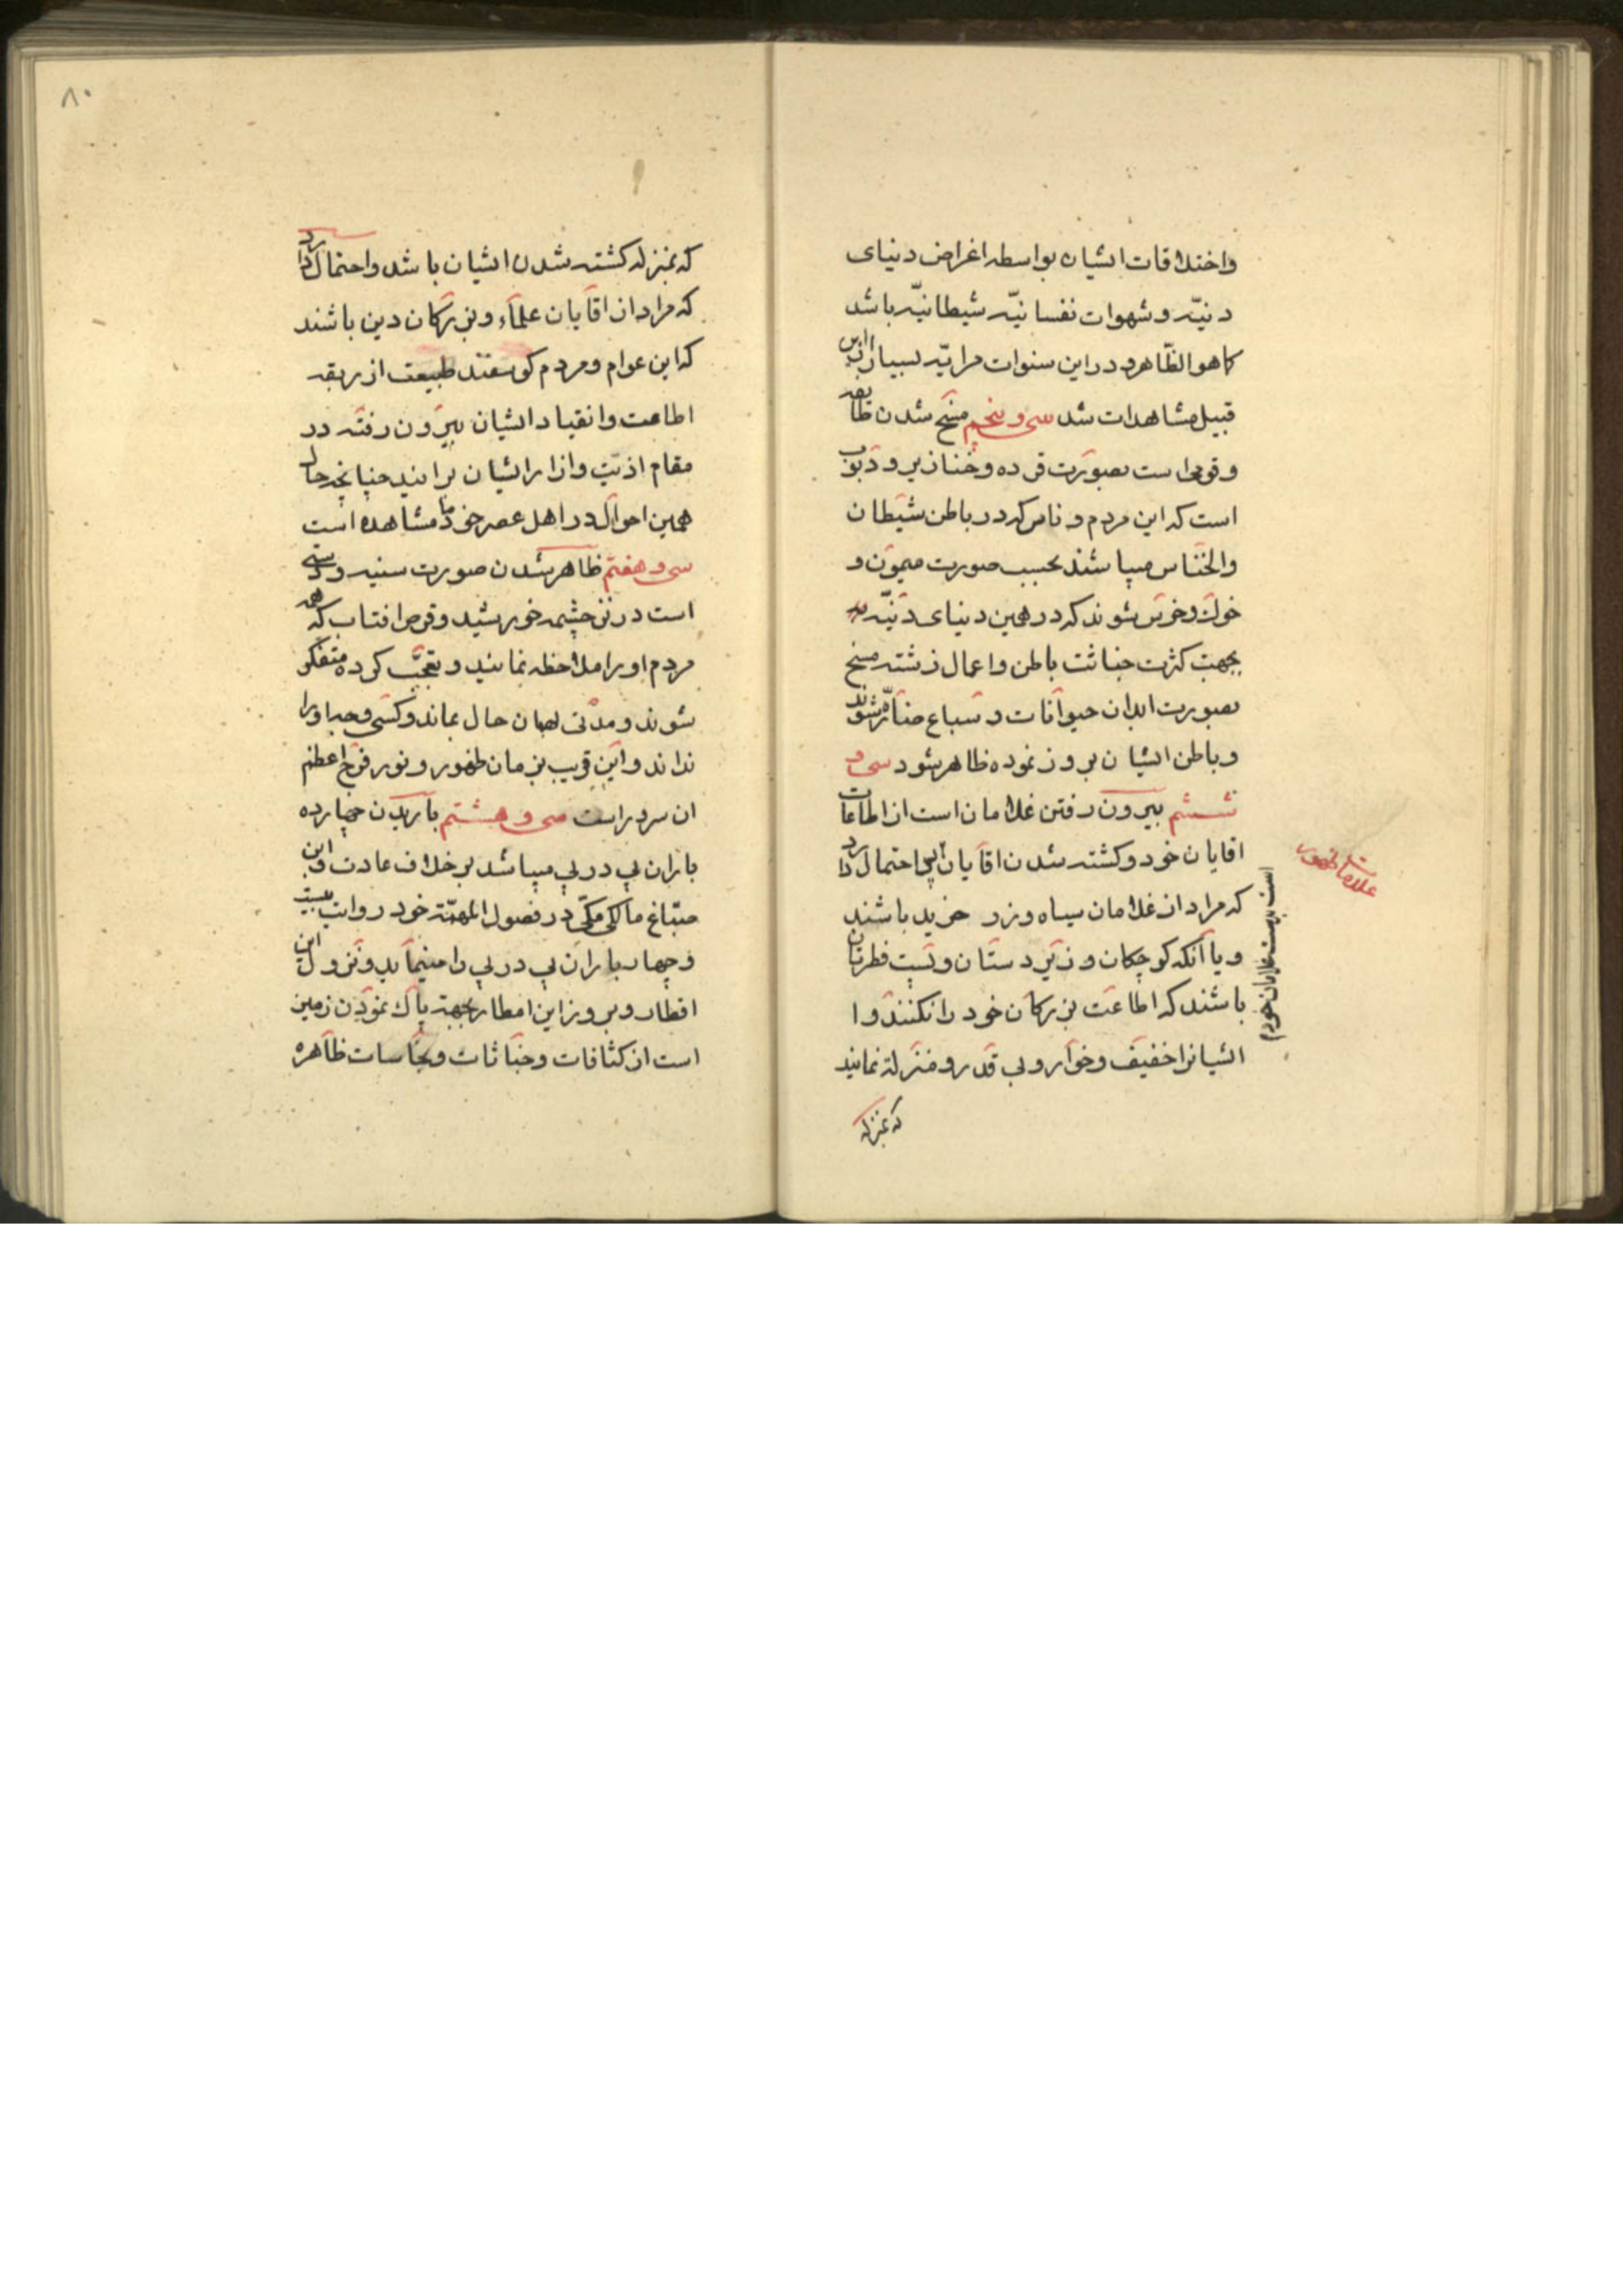 واختلافات ایشان بواسطه اغراض دنیای
دنیّه و شهوات نفسانیّه شیطانیّه باشد
کما هو الظّاهر و در این سنوات مرایّه بسیار از این
قبیل مشاهدات شد سی و پنجم مسخ شدن طایفه
و قومی است بصورت قرده و خنازیر و دبوب
است که این مردم و ناس که در باطن شیطان
والخنّاس میباشند بحسب صورت میمون و
خوک و خرس شوند که در همین دنیای دنیّه
بجهت کثرت خباثت باطن و اعمال زشته مسخ
بصورت ابدان حیوانات و سباع ضارّه شوند
و باطن ایشان بروز نموده ظاهر شود سی و
ششم بیرون رفتن غلامان است از اطاعات
اقایان خود و کشته شدن اقایان احتمال دارد
است بدست غلامان خودم
علامات ظهور
که مراد از غلامان سیاه و زر خرید باشند
و یا آنکه کوچکان و زیر دستان و پست فطرتان
باشند که اطاعت بزرکان خود را نکنند و ا
ایشانرا خفیف و خوار و بی قدر و منزلة نمایند
که بمنزله
۸۰
که بمنزله کشته شدن ایشان باشد و احتمال دارد
که مراد از اقایان علماء و بزرکان دین باشند
که این عوام و مردم کوسفند طبیعت از ربقه
اطاعت و انقیاد ایشان بیرون رفته در
مقام اذیّت و ازار ایشان برایند چنانچه حال
همین احوال در اهل عصر خود ما مشاهده است
سی و هفتم ظاهر شدن صورت سنیه و دستی
است در نزد چشمه خورشید و قرص افتاب که همه
مردم او را ملاحظه نمایند و تعجّب کرده متفکر
شوند و مدّتی بهمان حال بماند و کسی وجه او را
نداند و این قریب بزمان ظهور و نور فرخ اعظم
ان سرور است سی و هشتم باریدن چهارده
باران پی در پی میباشد بر خلاف عادت و ابن
صبّاغ مالکی مکّی در فصول المهمّة خود روایت بیست
و چهار باران پی در پی را مینماید و نزول این
اقطار و بروز این امطار بجهة پاک نمودن زمین
است از کثافات و خباثات و نجاسات ظاهره